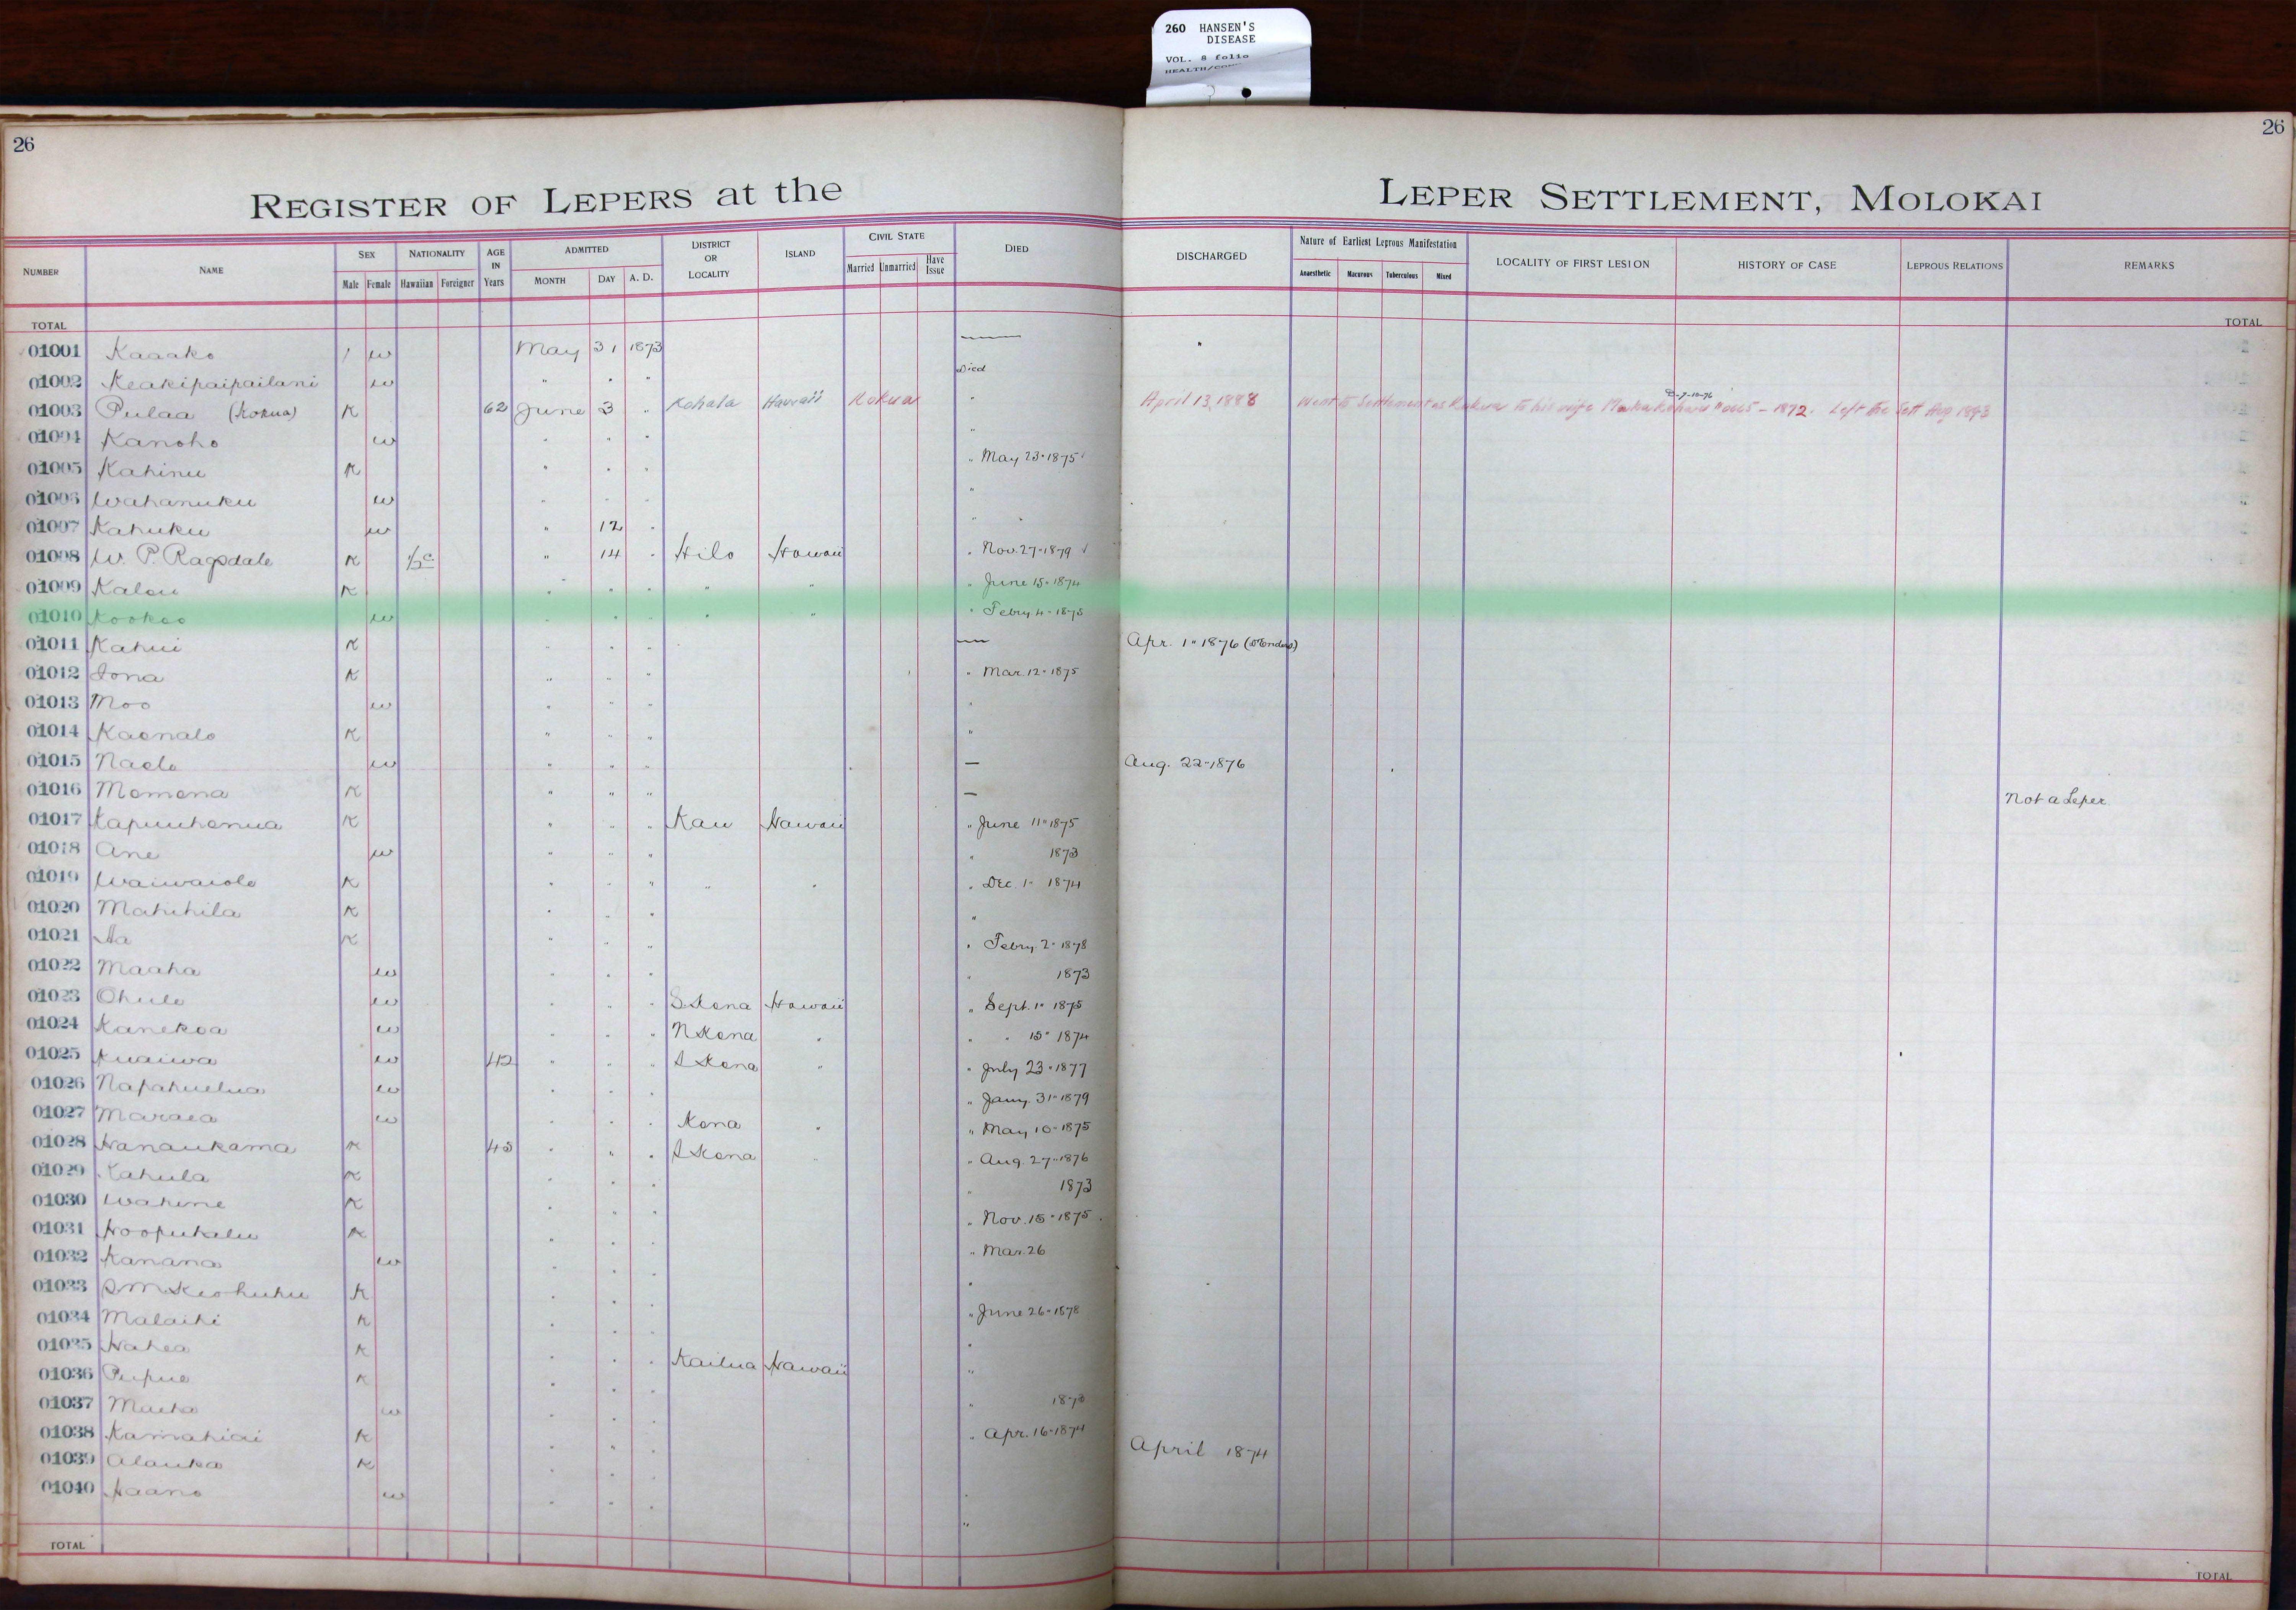 260 HANSEN'S
DISEASE
VOL. 8 folio
HEALTH/
26
26
REGISTER OF LEPERS at the LEPER SETTLEMENT, MOLOKAI
NUMBER NAME SEX NATIONALITY AGE IN Years ADMITTED DISTRICT OR LOCALITY ISLAND CIVIL STATE DIED DISCHARGED Nature of Earliest Leprous Manifestation LOCALITY OF FIRST LESION HISTORY OF CASE LEPROUS RELATIONS REMARKS
Male Female Hawaiian Foreigner MONTH DAY A. D. Married Unmarried Have Issue Anaesthetic Macurous Tuberculous Mixed
TOTAL TOTAL
01001 Kaaako / w May 31 1873 —
01002 Keakipaipailani w " " " Died
01003 Pulaa (Kokua) K 62 June 3 " Kohala Hawaii Kokua " April 13, 1888 Went to Settlement as Kokua to his wife - 1872. Left the Sett Aug 1893
01004 Kanoho w " " " "
01005 Kahinu K " " " " May 23 " 1875
01006 Wahanuku w " " " "
01007 Kahuku w " 12 " "
01008 W. P. Ragsdale K 1/2 c " 14 " Hilo Hawaii " Nov. 27 " 1879
01009 Kalou K " " " " " " June 15 " 1874
01010 Kookoo w " " " " " " Febry 4 - 1875
01011 Kahui K " " " — Apr. 1 " 1876
01012 Iona K " " " " Mar. 12 " 1875
01013 Moo w " " " "
01014 Kaonalo K " " " "
01015 Naelo w " " " — Aug. 22 - 1876
01016 Momona K " " " — Not a Leper
01017 Kapuuhonua K " " " Kau Hawaii " June 11 " 1875
01018 Ane w " " " " 1873
01019 Waiwaiole K " " " " " " Dec. 1 " 1874
01020 Mahihila K " " " "
01021 Aa K " " " " Febry 2 " 1878
01022 Maaha w " " " " 1873
01023 Ohule w " " " S. Kona Hawaii " Sept. 1 " 1875
01024 Kanekoa w " " " N Kona " " " 15 " 1874
01025 Kuaiwa w 42 " " " S Kona " " July 23 " 1877
01026 Napahuelua w " " " " Jany. 31 " 1879
01027 Maraea w " " " Kona " " May 10 " 1875
01028 Hanaukama K 45 " " " S Kona " " Aug. 27 " 1876
01029 Kahula K " " " " 1873
01030 Wahine K " " " " Nov. 15 " 1875
01031 Hoopukalu K " " " " Mar. 26
01032 Kanana w " " " "
01033 S M Keohuhu K " " " " June 26 " 1878
01034 Malaihi K " " " "
01035 Hahea K " " " Kailua Hawaii "
01036 Pupue K " " " " 1873
01037 Maeha w " " " " Apr. 16 - 1874
01038 Kamahiai K " " " April 1874
01039 Alauka K " " " "
01040 Haano w " " " "
TOTAL TOTAL